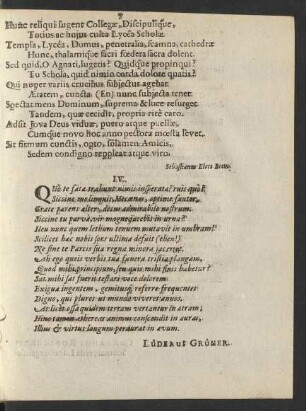 Hunc reliqui lugent Collegæ, Discipulique,
Totius ac hujus culta Lycéa Scholæ
Templa, Lycéa, Domus, penetralia, scamna, cathedræ
Hunc, thalamique sacri fœdera sacra dolent.
Sed quid, O Agnati, lugetis? Quidque propinqui?
Tu Schola, quid nimio corda dolore quatis?
Qui noper variis crucibus subjectus agebat
Ætatem, cuncta, (En) nunc subjecta tenet
Spectat mens Dominum, suprema & luce resurget
Tandem, quæ cecidit, propria ritè caro.
Adsit Jova Deus viduæ, puero atque puellæ,
Cumque novo hoc anno pectora mœsta levet.
Sit firmum cunctis, opto, solamen Amicis,
Sedem condigno reppleat atque viro.
Sebastianus Elers
IV.
QUo te fata trahunt nimis insperata? ruis quò?
Siccine me linquis, Mecænas, optime fautor,
Grate parens alter, decus admirabile nostrum.
Siccine tu parvâ vir magne jacebis in urnâ?
Heu nunc quem lethum tenuem mutavit in umbram!
Scilicet hæc nobis sors ultima defuit (eheu!)
Ne sine te Parcis sica regna minora jacerent.
Ah ego queis verbis tua funera tristia plangam,
Quod mihi principium, seu quis mihi finis habetur?
Sat mihi sat fuerit testari voce dolorem
Exiguâ ingentem, gemitusq; referre frequentes
Digno, qui plures ut mundo viveret annos.
At licet ossa quidem terram vertantur in atram;
Mens tamen æthereas animus conscendit in auras,
Illius & virtus longum perdurat in ævum.
LÜDERUS GRÜNER.